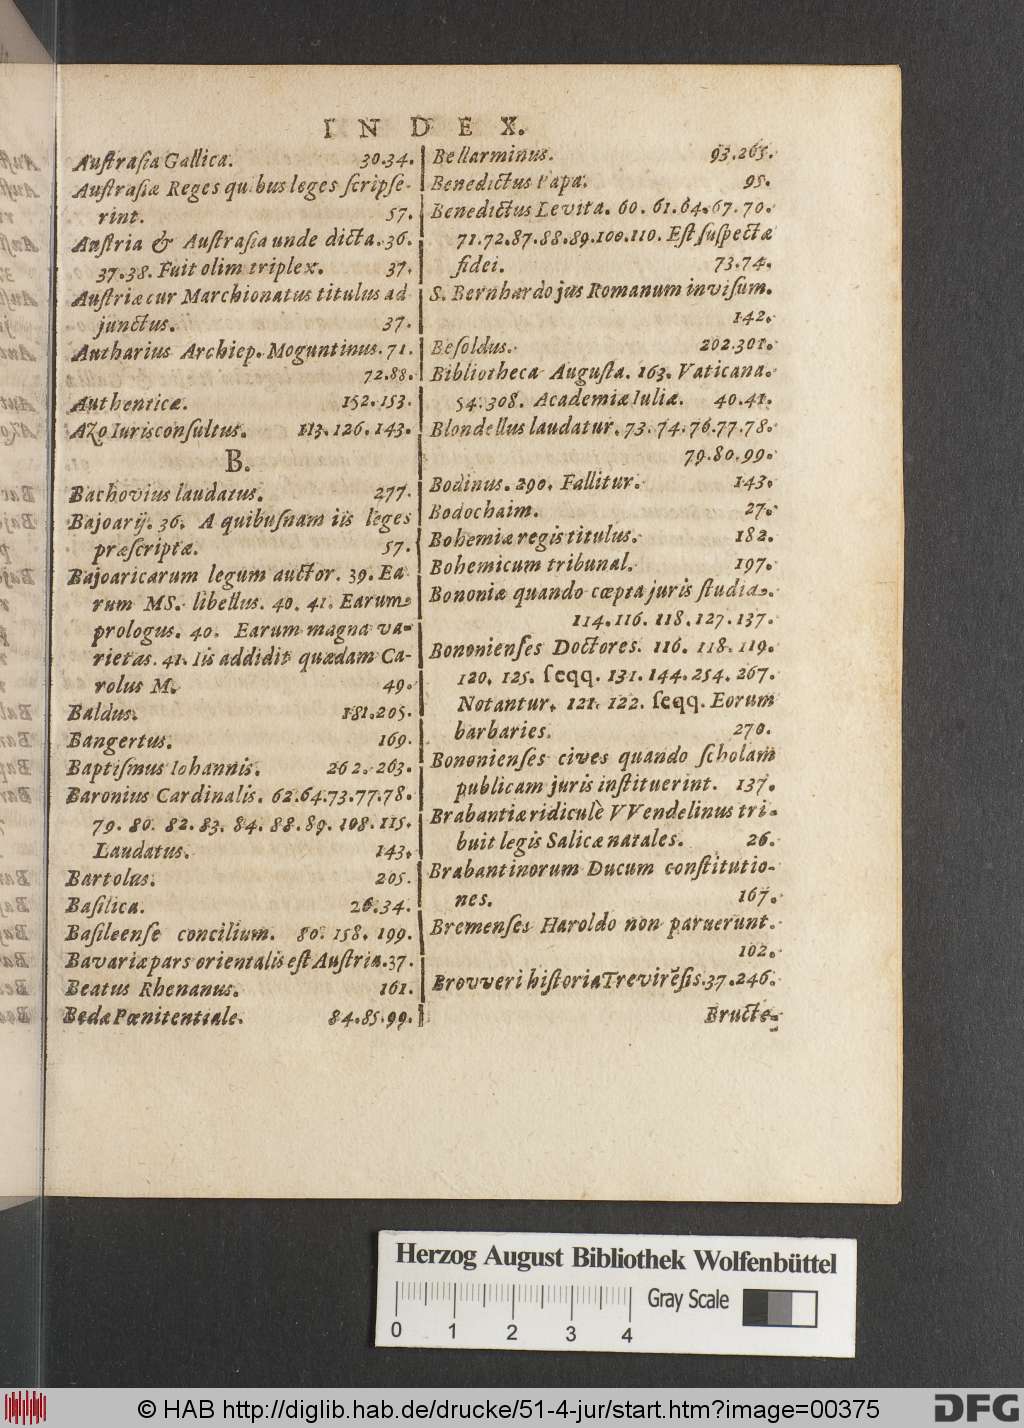 INDEX.
Auſtraſia Gallica. 30.34.
Auſtraſiæ Reges quibus leges ſcripſe-
rint. 57.
Auſtria & Auſtraſia unde dicta. 36.
37.38. Fuit olim triplex. 37.
Auſtriæ cur Marchionatus titulus ad
junctus. 37.
Autharius Archiep. Moguntinus. 71.
72.88.
Authenticæ. 152.153.
Azo Iurisconſultus. 113.126.143.
B.
Bachovius laudatus. 277.
Bajoarij. 36. A quibuſnam iis leges
præſcriptæ. 57.
Bajoaricarum legum auctor. 39. Ea
rum MS. libellus. 40. 41. Earum
prologus. 40. Earum magna va-
rietas. 41. Iis addidit quædam Ca-
rolus M. 49.
Baldus. 181.205.
Bangertus. 169.
Baptiſmus Iohannis. 262.263.
Baronius Cardinalis. 62.64.73.77.78.
79. 80. 82. 83. 84. 88. 89. 108. 115.
Laudatus. 143.
Bartolus. 205.
Baſilica. 26.34.
Baſileenſe concilium. 80. 158. 199.
Bavariæ pars orientalis eſt Auſtria. 37.
Beatus Rhenanus. 161.
Bedæ Pœnitentiale. 84.85.99.
Bellarminus. 93.265.
Benedictus Papa. 95.
Benedictus Levita. 60. 61.64.67.70.
71.72.87.88.89.100.110. Eſt ſuſpectæ
fidei. 73.74.
S. Bernhardo jus Romanum inviſum.
142.
Beſoldus. 202.301.
Bibliotheca Auguſta. 163. Vaticana.
54.308. Academiæ Iuliæ. 40.41.
Blondellus laudatur. 73.74.76.77.78.
79.80.99.
Bodinus. 290. Fallitur. 143.
Bodochaim. 27.
Bohemiæ regis titulus. 182.
Bohemicum tribunal. 197.
Bononiæ quando cœpta juris ſtudia.
114.116. 118.127.137.
Bononienſes Doctores. 116. 118. 119.
120. 125. ſeqq. 131. 144. 254. 267.
Notantur. 121. 122. ſeqq. Eorum
barbaries. 270.
Bononienſes cives quando ſcholam
publicam juris inſtituerint. 137.
Brabantiæ ridiculè VVendelinus tri-
buit legis Salicæ natales. 26.
Brabantinorum Ducum conſtitutio-
nes. 167.
Bremenſes Haroldo non paruerunt.
102.
Brovveri hiſtoria Trevirēſis. 37.246.
Bructe-
Herzog August Bibliothek Wolfenbüttel
Gray Scale
0 1 2 3 4
© HAB http://diglib.hab.de/drucke/51-4-jur/start.htm?image=00375
DFG